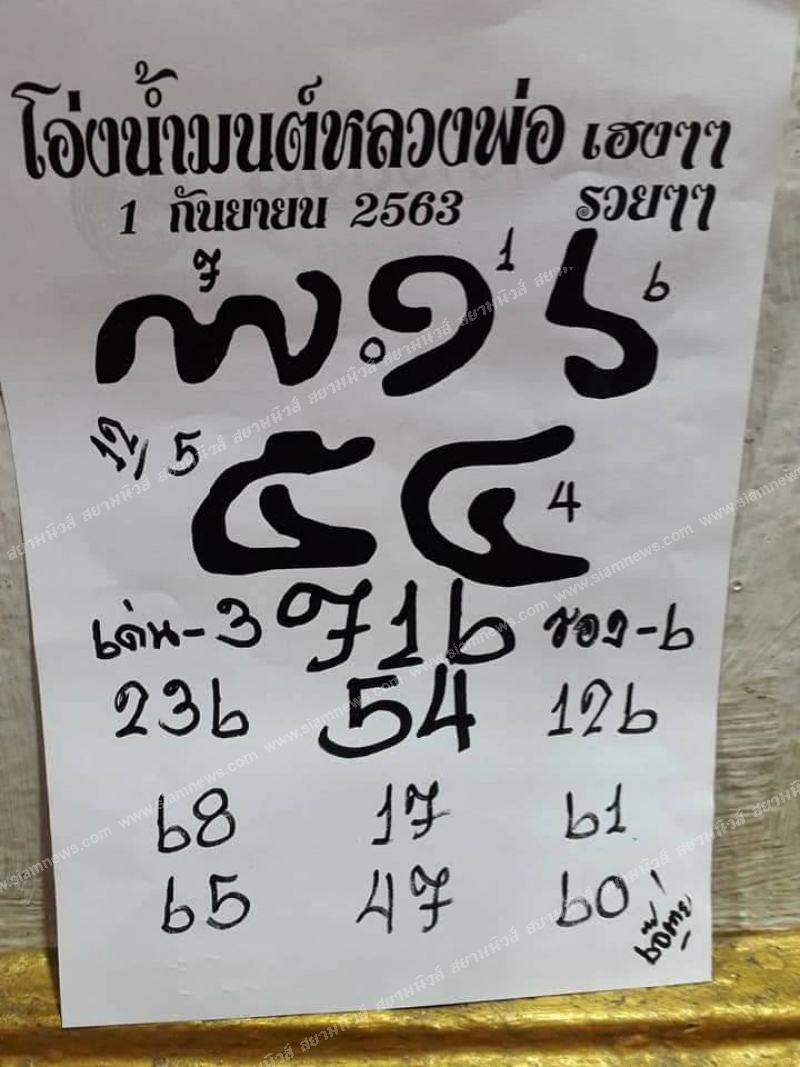 โอ่งน้ำมนต์หลวงพ่อ เฮงๆๆ
1 กันยายน 2563 รวยๆๆ
7 1 6
๗ ๑ ๖
12/ 5 ๕ ๔ 4
เด่น-3 716 รอง-6
236 54 126
68 17 61
65 47 60
สยามนิวส์ www.siamnews.com